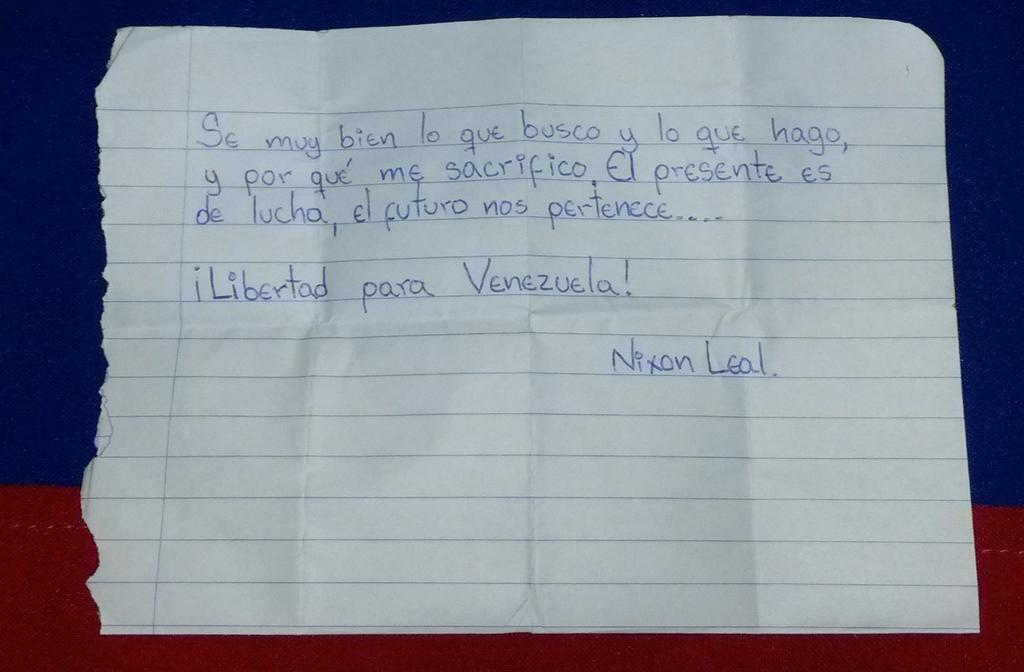 Se muy bien lo que busco y lo que hago,
y por qué me sacrifico. El presente es
de lucha, el futuro nos pertenece....
¡Libertad para Venezuela!
Nixon Leal.